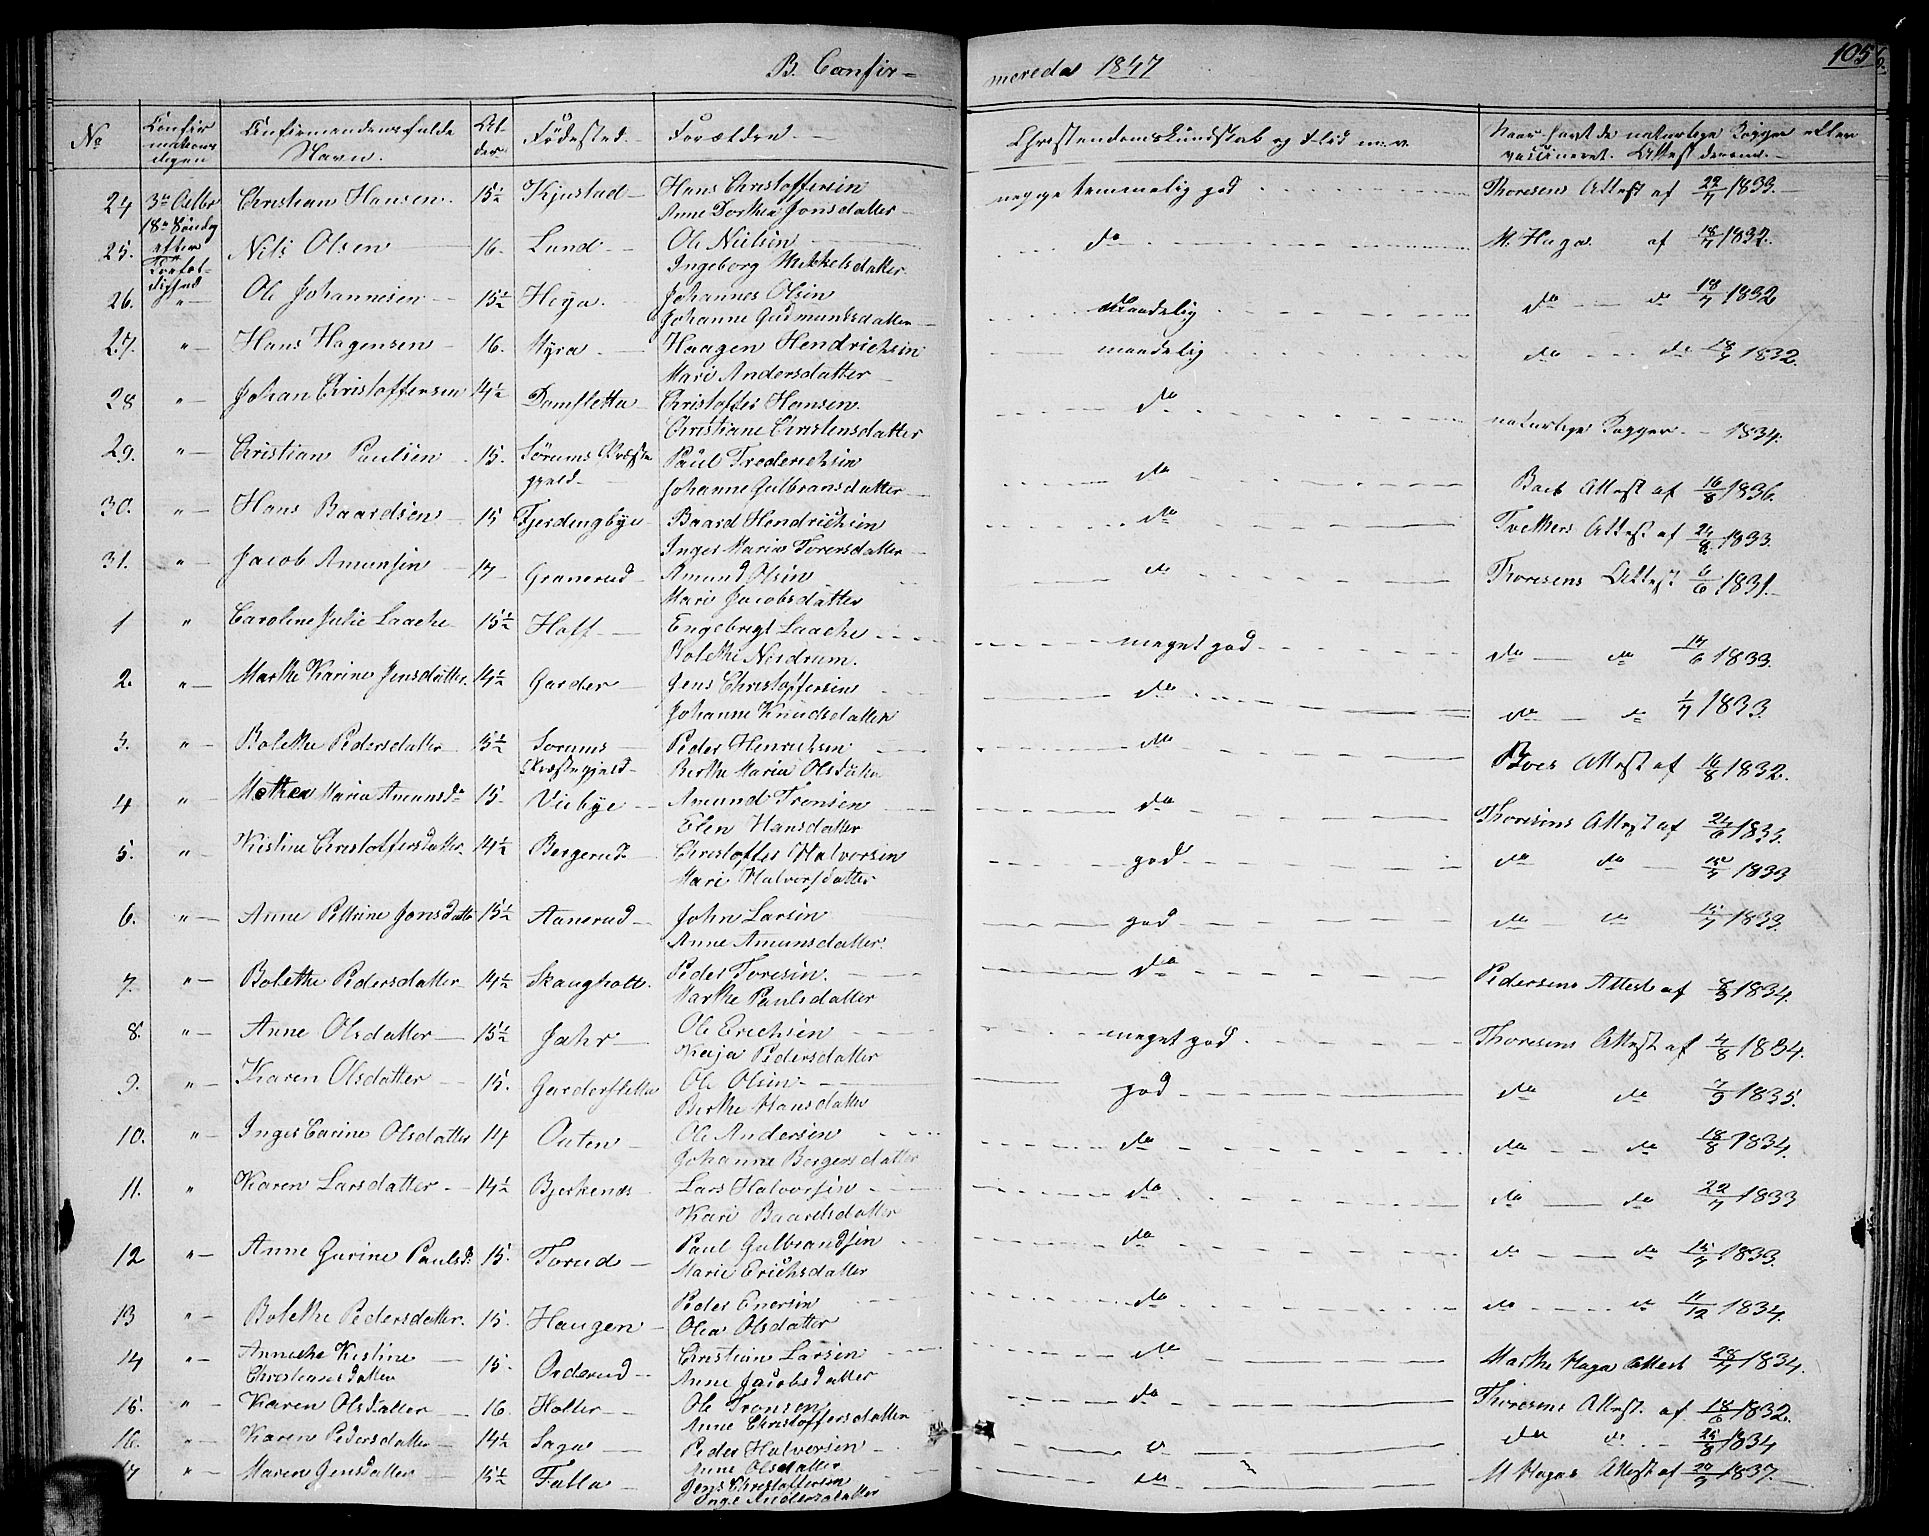 B. Confir= mereda 1847
105
No
Confir mations digen
Confirmandens fulde Navn.
Al- der
Födested.
Forældre.
Christendomskundskab og Flid m.v.
Naar havt de naturlige Kopper eller vaccineret. Attest derom.
24 3die Octbr Christian Hansen. 15½ Kjustad Hans Christoffersen nogge temmelig god Thoresens Attest af 22/7 1833.
18de Söndag Anne Dorthea Jonsdatter
25. efter Nils Olsen 16. Lund Ole Nielsen do M. Haga af 18/7 1832.
Trefol- Ingeborg Mikkelsdatter
dighed
26. " Ole Johannesen 15½ Heya. Johannes Olsen Maadelig do do 18/7 1832
Johanne Gudmundsdatter
27. " Hans Hagensen 16. Myra Haagen Hendrichsen maadelig do do 18/7 1832.
Mari Andersdatter
28 " Johan Christoffersen 14½ Damsletta Christoffer Hansen. do naturlige Kopper 1834.
Christiane Christensdatter
29. " Christian Paulsen 15. Sörums Præste Paul Frederichsen do Attest af 16/8 1836.
gjeld Johanne Gulbransdatter
30. " Hans Baardsen 15 Fjerdingbye Baard Hendrichsen do Tvethers Attest af 24/8 1833.
Inger Maria Torersdatter
31. " Jacob Amunsen 17 Granerud Amund Olsen do Thoresens Attest 6/6 1831.
Mari Jacobsdatter
1 " Caroline Julie Laache 15½ Hoff Engebrigt Laache meget god do do 17/6 1833.
Bolethe Nerdrum.
2. " Marthe Karine Jensdatter. 14½ Garder Jens Christoffersen do do do 1/7 1833.
Johanne Knudsdatter
3. " Bolethe Pedersdatter 15½ Sorums Peder Henrichsen do Attest af 16/8 1832.
Præstegjeld Berthe Maria Olsdatter
4 " Mathea Maria Amunsdr 15. Viebye Amund Tronsen do Thoresens Attest af 24/6 1833.
Elen Hansdatter
5. " Kistine Christoffersdatter. 14½ Bergerud Christoffer Halvorsen god do do 1833
Mari Halvorsdatter
6. " Anne Pettrine Jonsdatter 15½ Aanerud John Larsen god do do 15/7 1833.
Anne Amunsdatter.
7. " Bolethe Pedersdatter 14½ Skaugholt. Peder Toresen. do Pedersens Attest af 8/9 1834.
Marthe Paulsdatter
8. " Anne Olsdatter 15½ Jahr Ole Erichsen meget god Thoresens Attest af 4/8 1834.
Kaja Pedersdatter
9. " Karen Olsdatter 15. Gardersletta Ole Olsen god do do 7/9 1835.
Berthe Hansdatter
10. " Inger Carine Olsdatter 14 Outen Ole Andersen do do do 18/8 1834.
Johanne Borgersdatter
11. " Karen Larsdatter 14½ Bjerkenes Lars Halvorsen do do do 22/7 1833
Kari Baardsdatter
12 " Anne Gurine Paulsdr 15. Torud Paul Gulbrandsen do do do 15/7 1833.
Marie Erichsdatter
13 " Bolethe Pedersdatter. 15. Haugen Peder Enersen do do do 11/12 1834.
Olia Olsdatter
14 " Annethe Kistine 15. Orderud Christian Larsen do Marthe Haga Attest 28/7 1834.
Christiansdatter Anne Jacobsdatter
15. " Karen Olsdatter 16. Holter Ole Tronsen do Thoresens Attest af 18/6 1832.
Anne Christoffersdatter
16. " Karen Pedersdatter 14½ Saga Peder Halvorsen do do 25/8 1834
Anne Olsdatter
17 " Maren Jensdatter 15½ Falla Jens Christoffersen do M Hagas Attest af 20/9 1837.
Inge Andersdatter